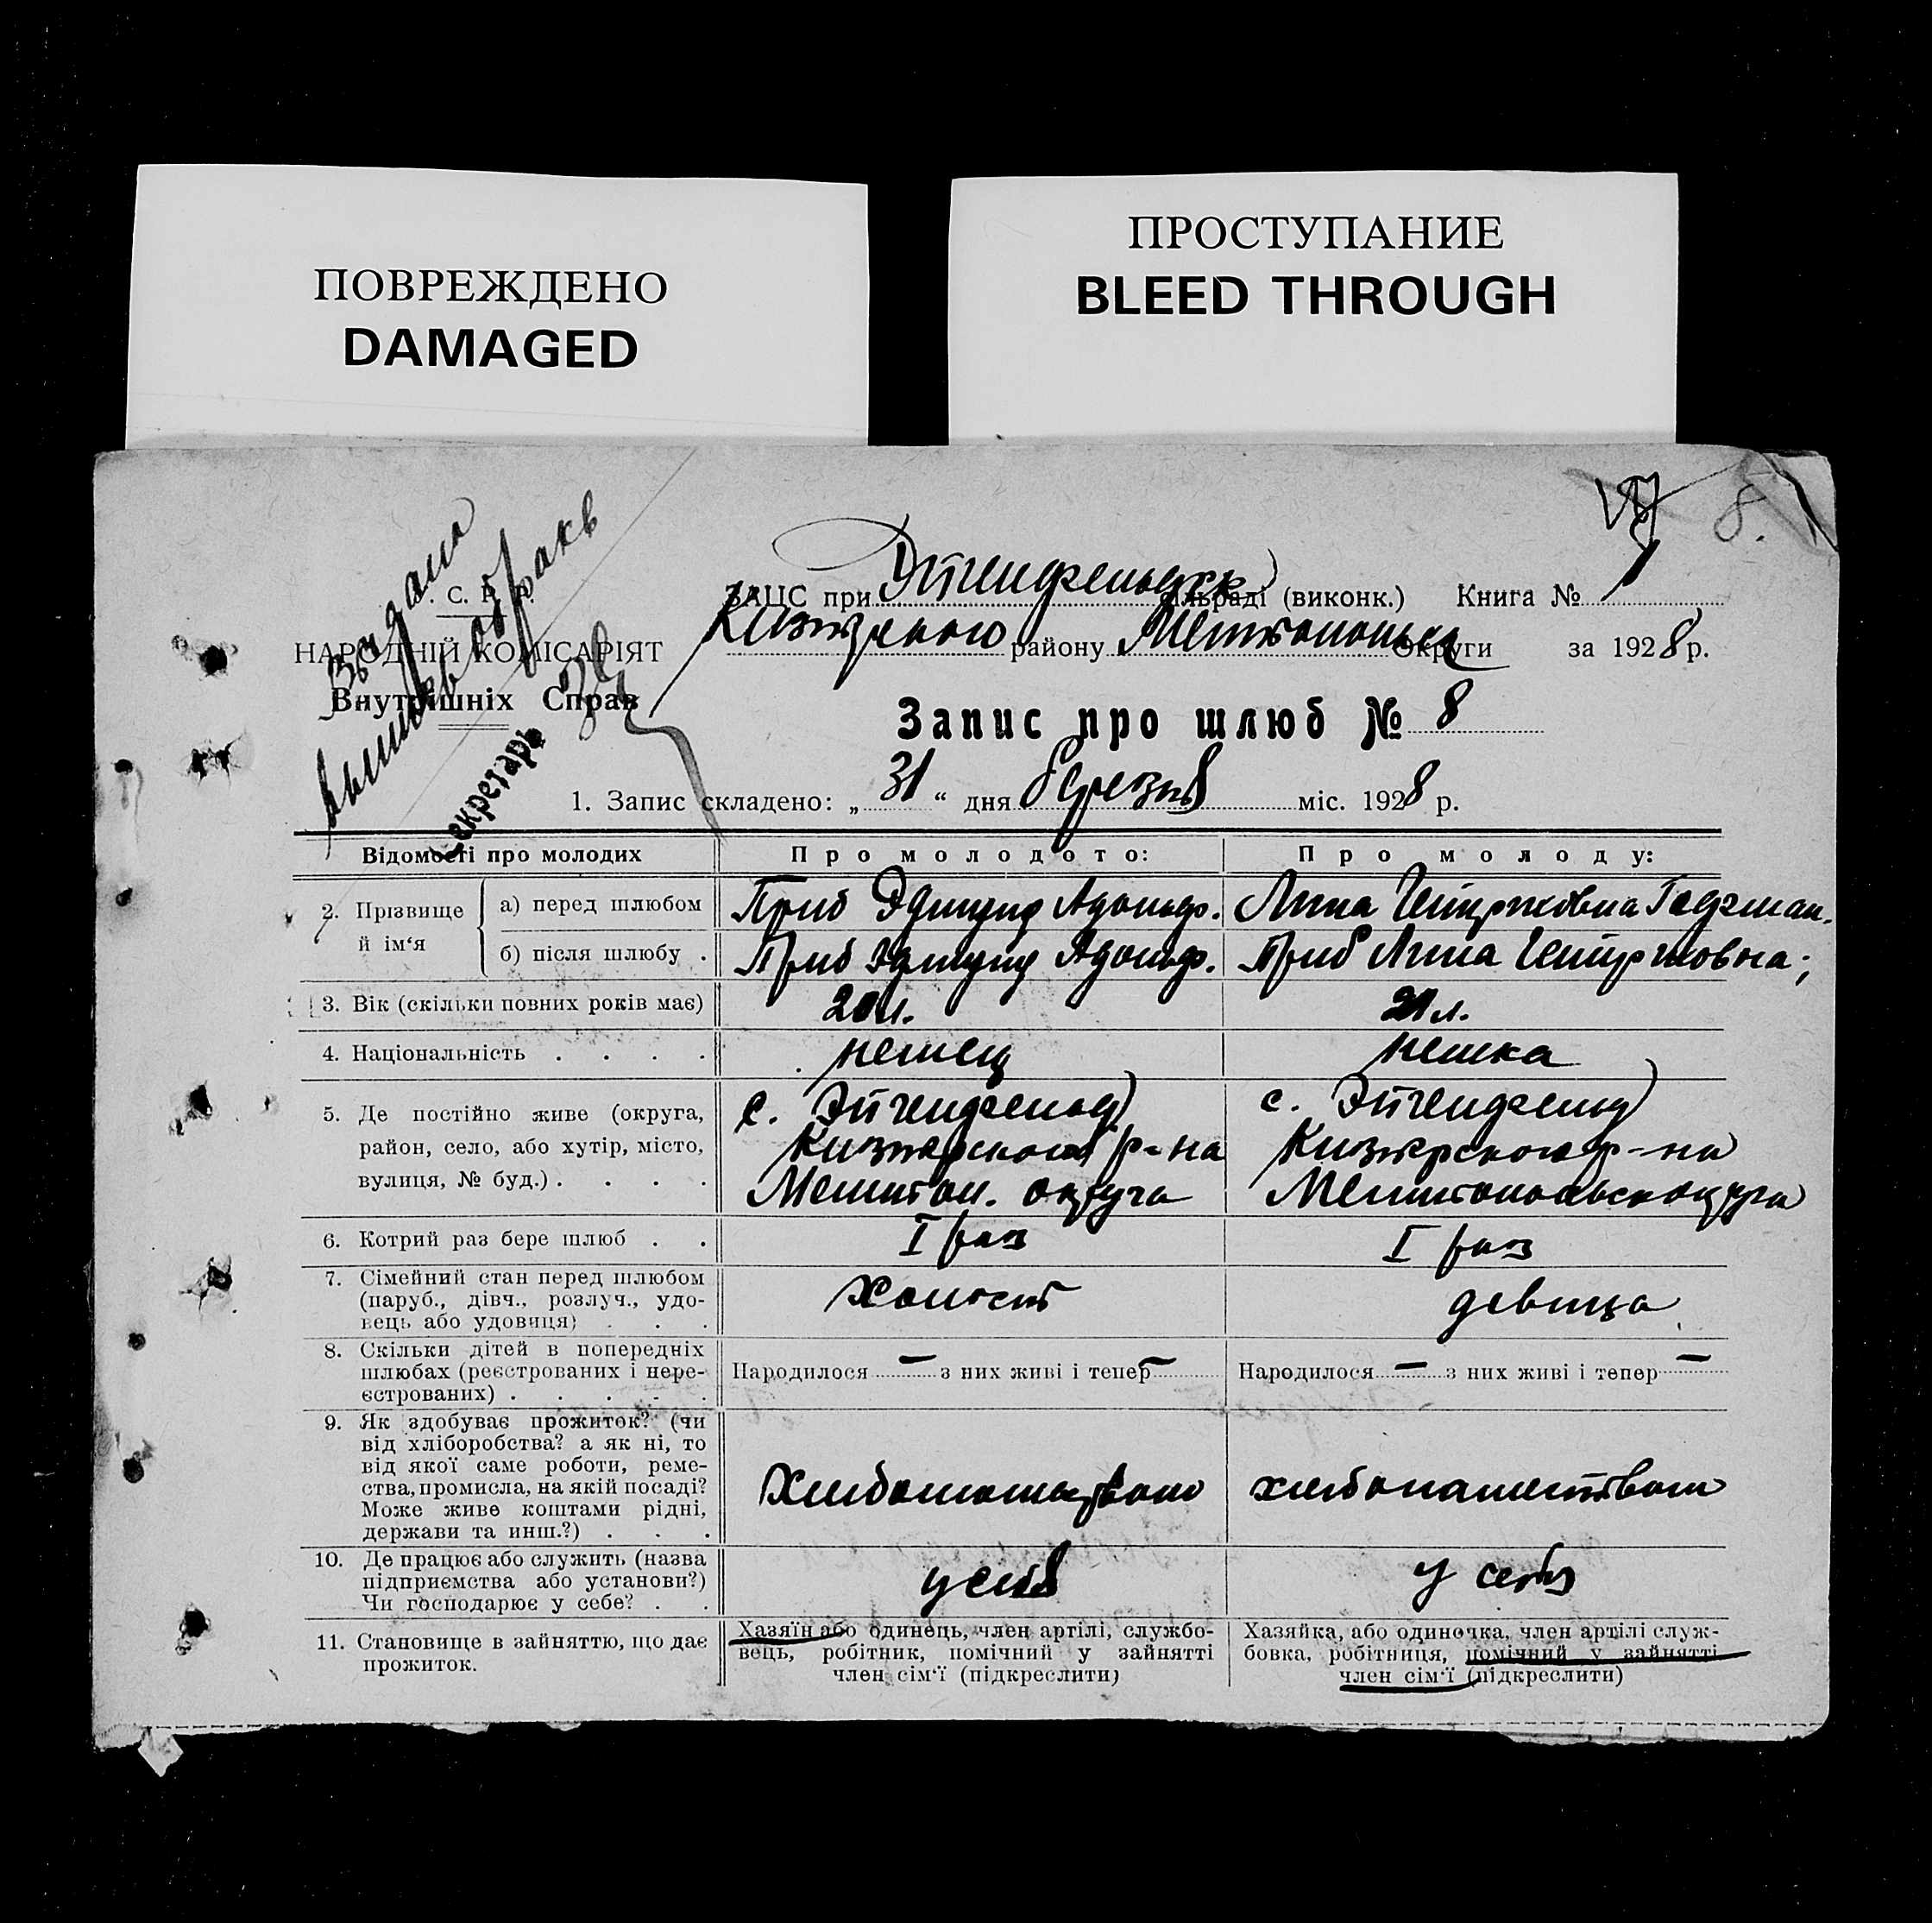 ПОВРЕЖДЕНО
DAMAGED
ПРОСТУПАНИЕ
BLEED THROUGH
8.
Видана
С. Р.
НАРОДНІЙ КОМІСАРІЯТ
Внутрішніх Справ
Секретарь
ЗАЦС при сільраді (виконк.) Книга № 1
району Округи за 1928 р.
Запис про шлюб № 8
1. Запис складено: „ 31 “ дня березня міс. 1928 р.
Відомості про молодих Про молодого: Про молоду:
2. Прізвище й ім‘я
а) перед шлюбом Приб Эдмунд Адольф. Лина Генриховна
б) після шлюбу . Приб Эдмунд Адольф. Приб Лина Генриховна;
3. Вік (скільки повних років має) 20 л. 21 л.
4. Національність . . . . немец немка
5. Де постійно живе (округа, район, село, або хутір, місто, вулиця, № буд.) . . . .
с. р-на округа
с. р-на
6. Котрий раз бере шлюб . . I раз I раз
7. Сімейний стан перед шлюбом (паруб., дівч., розлуч., удовець або удовиця) . . . холост девица
8. Скільки дітей в попередніх шлюбах (реєстрованих і нереєстрованих) . . . . .
Народилося — з них живі і тепер —
Народилося — з них живі і тепер —
9. Як здобуває прожиток? (чи від хліборобства? а як ні, то від якої саме роботи, ремества, промисла, на якій посаді? Може живе коштами рідні, держави та инш.?) . . .
хлебопашеством
10. Де працює або служить (назва підприємства або установи?) Чи господарює у себе? . .
у себя у себя
11. Становище в зайняттю, що дає прожиток.
Хазяїн або одинець, член артілі, службовець, робітник, помічний у зайнятті член сім‘ї (підкреслити)
Хазяйка, або одиночка, член артілі службовка, робітниця, помічний у зайнятті член сім‘ї (підкреслити)